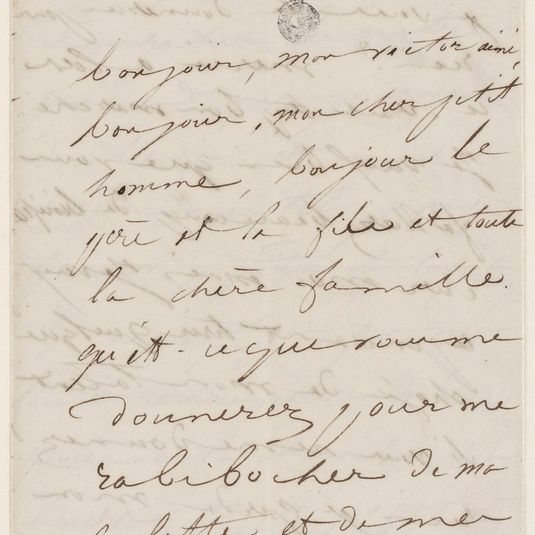 bonjour, mon victor aimé,
bonjour, mon cher petit
homme, bonjour le
père et la fille et toute
la chère famille.
qu'est-ce que vous me
donnerez pour me
rabibocher de ma
culotte et de mes